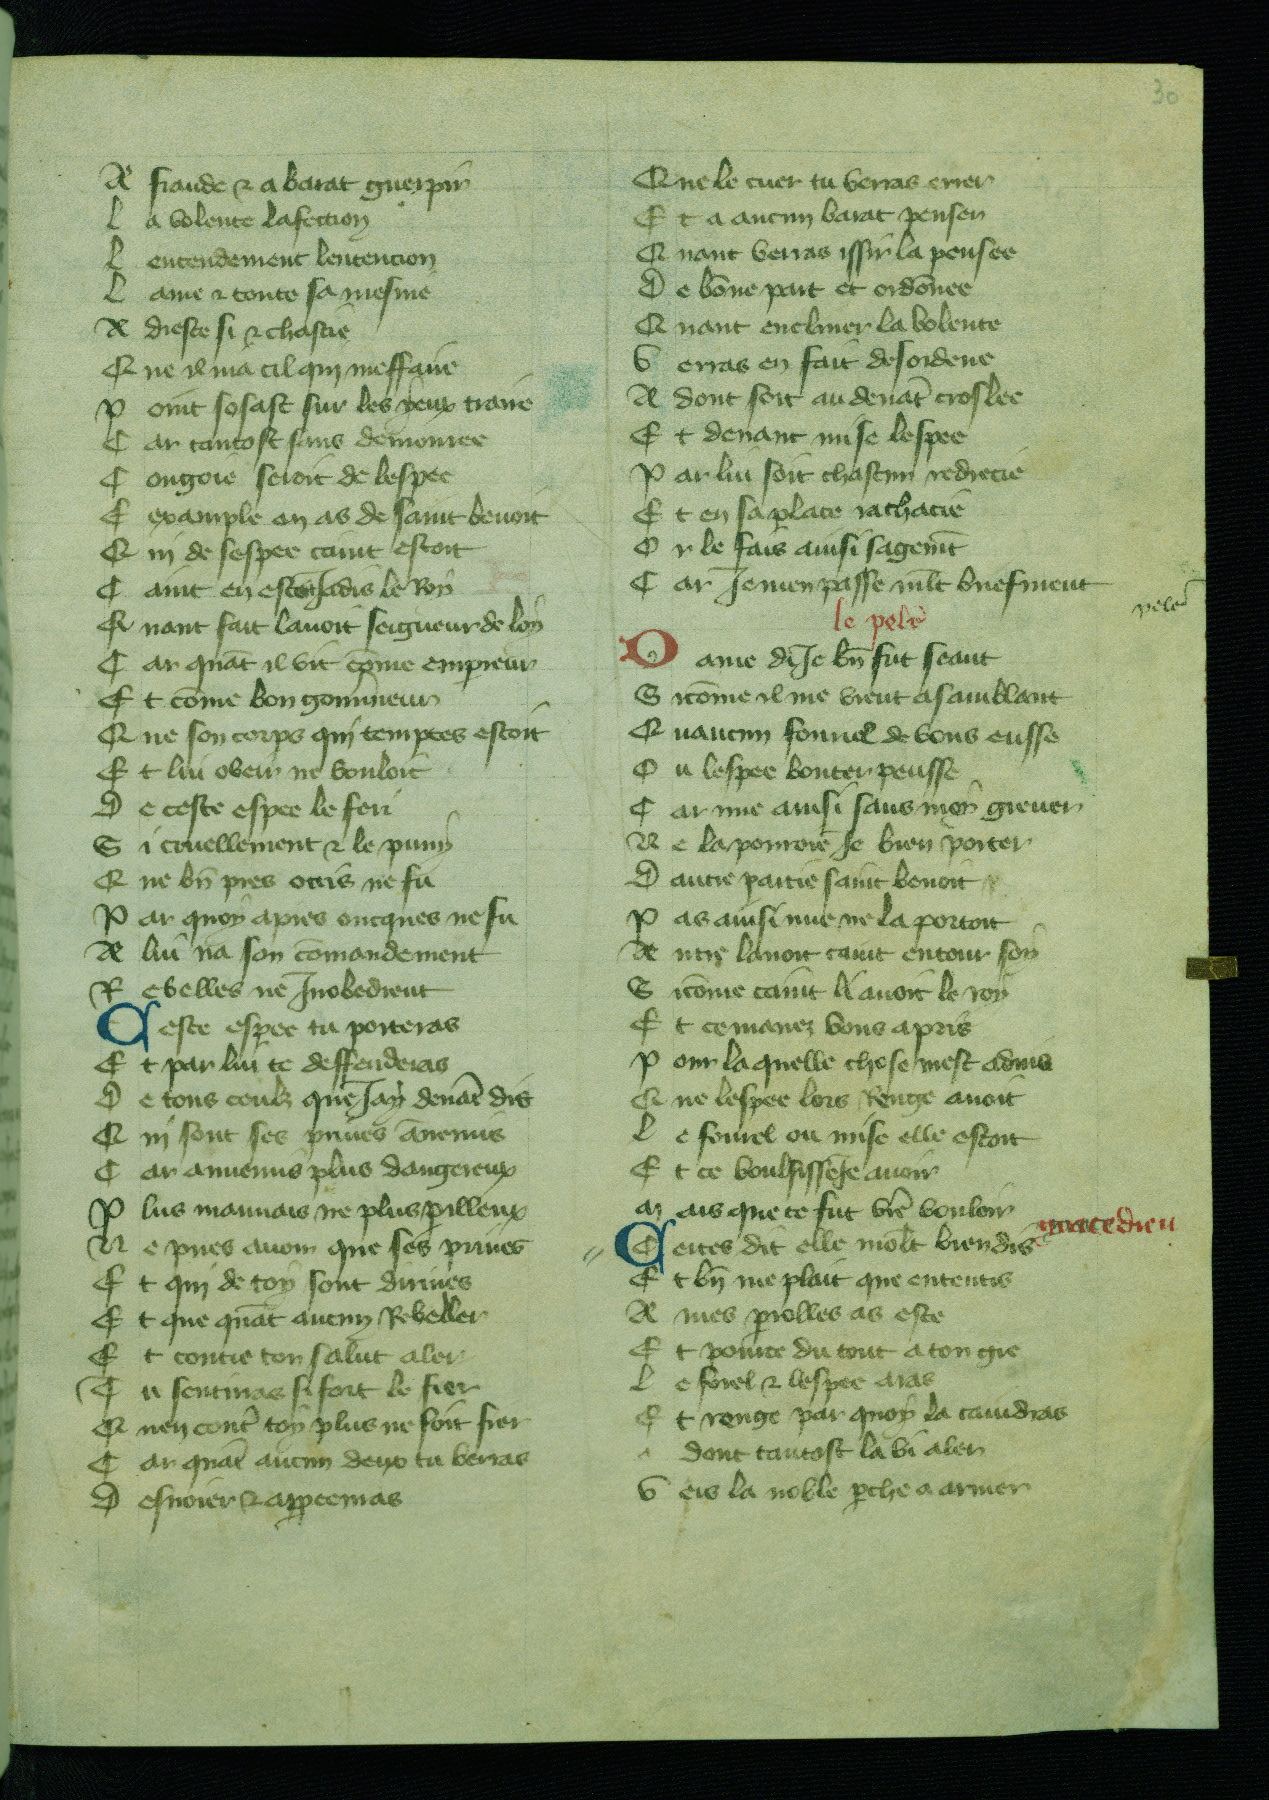 30
A fraude & a barat guerpir
L a volente lafection
L entendement lentencion
L ame & toute sa mesnie
A dresce si & chastie
Q ue il na cil qui meffaire
P oint sosast sur les yeux traire
C ar tantost sans demouree
C ongoie seroit de lespee
E xample en as de saint benoit
Q ui de sespee caint estoit
C aint en estoit Jadis le Roy
Q uant fait lavoit seigneur de loy
C ar quāt il vit cōme empereur
E t cōme bon gouverneur
Q ue son corps qui temptes estoit
E t lui obeir ne vouloit
D e ceste espee le feri
S i cruellement & le puny
Q ue bn̄ pres occis ne fu
P ar quoy apres oncques ne fu
A lui na son cōmandement
R ebelles ne Inobedient
C este espee tu porteras
E t par lui te deffenderas
D e tous ceulz que Jay devāt dis
Q ui sont ses prives ānemis
C ar annemis plus dangereux
P lus mauvais ne plus perilleux
N e pues avoir que ses prives
E t qui de toy sont dirives
E t que quāt aucun Rebeller
E t contre ton salut aler
T u sentiras si fort le fier
Q uen contr̄ toy plus ne soit fier
C ar quāt aucun deux tu verras
D esvoier & apperceuras
Q ue le cuer tu verras errer
E t a aucun barat penser
Q uant verras issir la pensee
D e bōne part et ordōnee
Q uant encliner la volente
V erras en fait desordene
A dont soit au devāt croslee
E t devant mise lespee
P ar lui soit chascun redrecie
E t en sa place rachacie
O r le fais ainsi sagemēt
C ar Je men passe mlt briefment
le pelē
pelē
D ame di Je bn̄ fut seant
S icōme il me vient a samblant
Q uaucun fourrel de vous eusse
O u lespee bouter peusse
C ar nue ainsi sans moy grever
N e la pourroie Je bien porter
D autre partie saint benoit
P as ainsi nue ne la portoit
A ntre lavoit caint entour soy
S icōme caint li avoit le roy
E t ce mavez vous apris
P our la quelle chose mest advis
Q ue lespee lors Renge avoit
L e fourrel ou mise elle estoit
E t ce voulsisse Je avoir
M ais que ce fut vr̄e vouloir
grace dieu
C ertes dit elle molt bien dis
E t bn̄ me plait que ententis
A mes parolles as este
E t pource du tout a ton gre
L e forel & lespee aras
E t renge par quoy la caindras
A dont tantost la vi aler
V eis la noble perche a armer